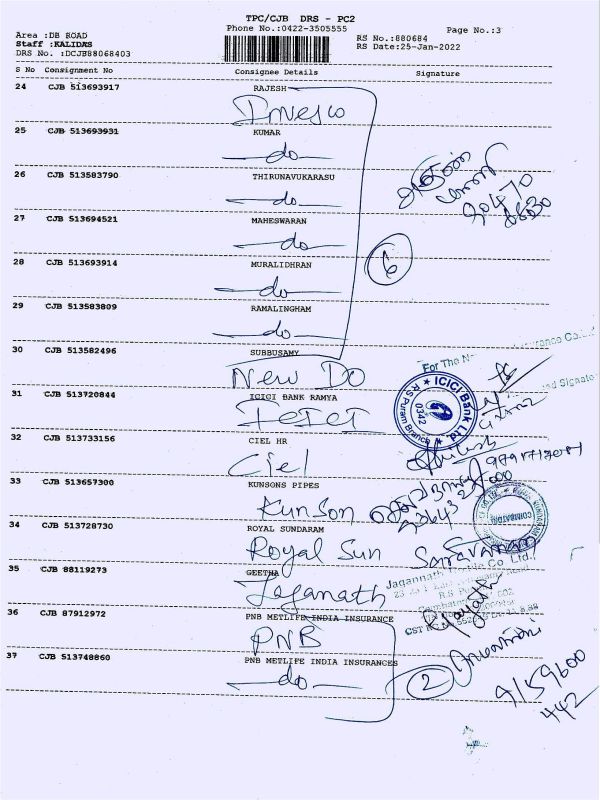 TPC/CJB DRS - PC2
Phone No.:0422-3505555
Page No.:3
Area :DB ROAD
Staff :KALIDAS
DRS No. :DCJB88068403
RS No.:880684
RS Date:25-Jan-2022
S No Consignment No Consignee Details Signature
24 CJB 513693917 RAJESH
Invesco
25 CJB 513693931 KUMAR
do
26 CJB 513583790 THIRUNAVUKARASU
do
27 CJB 513694521 MAHESWARAN
do
28 CJB 513693914 MURALIDHRAN
do
29 CJB 513583809 RAMALINGHAM
do
6
30 CJB 513582496 SUBBUSAMY
New Do
For The N
31 CJB 513720844 ICICI BANK RAMYA
ICICI
ICICI Bank Ltd.
RS Puram Branch
0342
32 CJB 513733156 CIEL HR
Ciel
33 CJB 513657300 KUNSONS PIPES
Kunson
34 CJB 513728730 ROYAL SUNDARAM
Royal Sun Saravanan
35 CJB 88119273 GEETHA
Jaganath
36 CJB 87912972 PNB METLIFE INDIA INSURANCE
PNB
37 CJB 513748860 PNB METLIFE INDIA INSURANCES
do
2
9159600
442